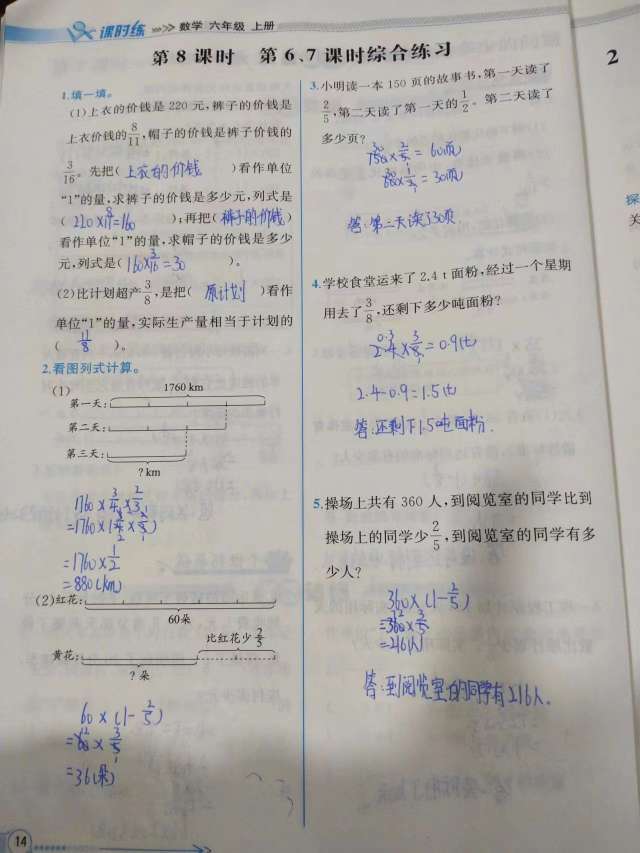 课时练 数学 六年级 上册
第8课时 第6、7课时综合练习
1.填一填。
(1)上衣的价钱是220元,裤子的价钱是
上衣价钱的8/11,帽子的价钱是裤子价钱的
3/16。先把(上衣的价钱)看作单位
“1”的量,求裤子的价钱是多少元,列式是
(220×8/11=160);再把(裤子的价钱)
看作单位“1”的量,求帽子的价钱是多少
元,列式是(160×3/16=30)。
(2)比计划超产3/8,是把(原计划)看作
单位“1”的量,实际生产量相当于计划的
(11/8)。
2.看图列式计算。
(1)
1760 km
第一天:
第二天:
第三天:
? km
1760×3/4×2/3
=1760×(3/4×2/3)
=1760×1/2
=880(km)
(2)红花:
60朵
比红花少2/5
黄花:
?朵
60×(1-2/5)
=60×3/5
=36(朵)
14
3.小明读一本150页的故事书,第一天读了
2/5,第二天读了第一天的1/2。第二天读了
多少页?
150×2/5=60页
60×1/2=30页
答:第二天读了30页
4.学校食堂运来了2.4 t面粉,经过一个星期
用去了3/8,还剩下多少吨面粉?
2.4×3/8=0.9(t)
2.4-0.9=1.5(t)
答:还剩下1.5吨面粉.
5.操场上共有360人,到阅览室的同学比到
操场上的同学少2/5,到阅览室的同学有多
少人?
360×(1-2/5)
=360×3/5
=216(人)
答:到阅览室的同学有216人.
2
探
关